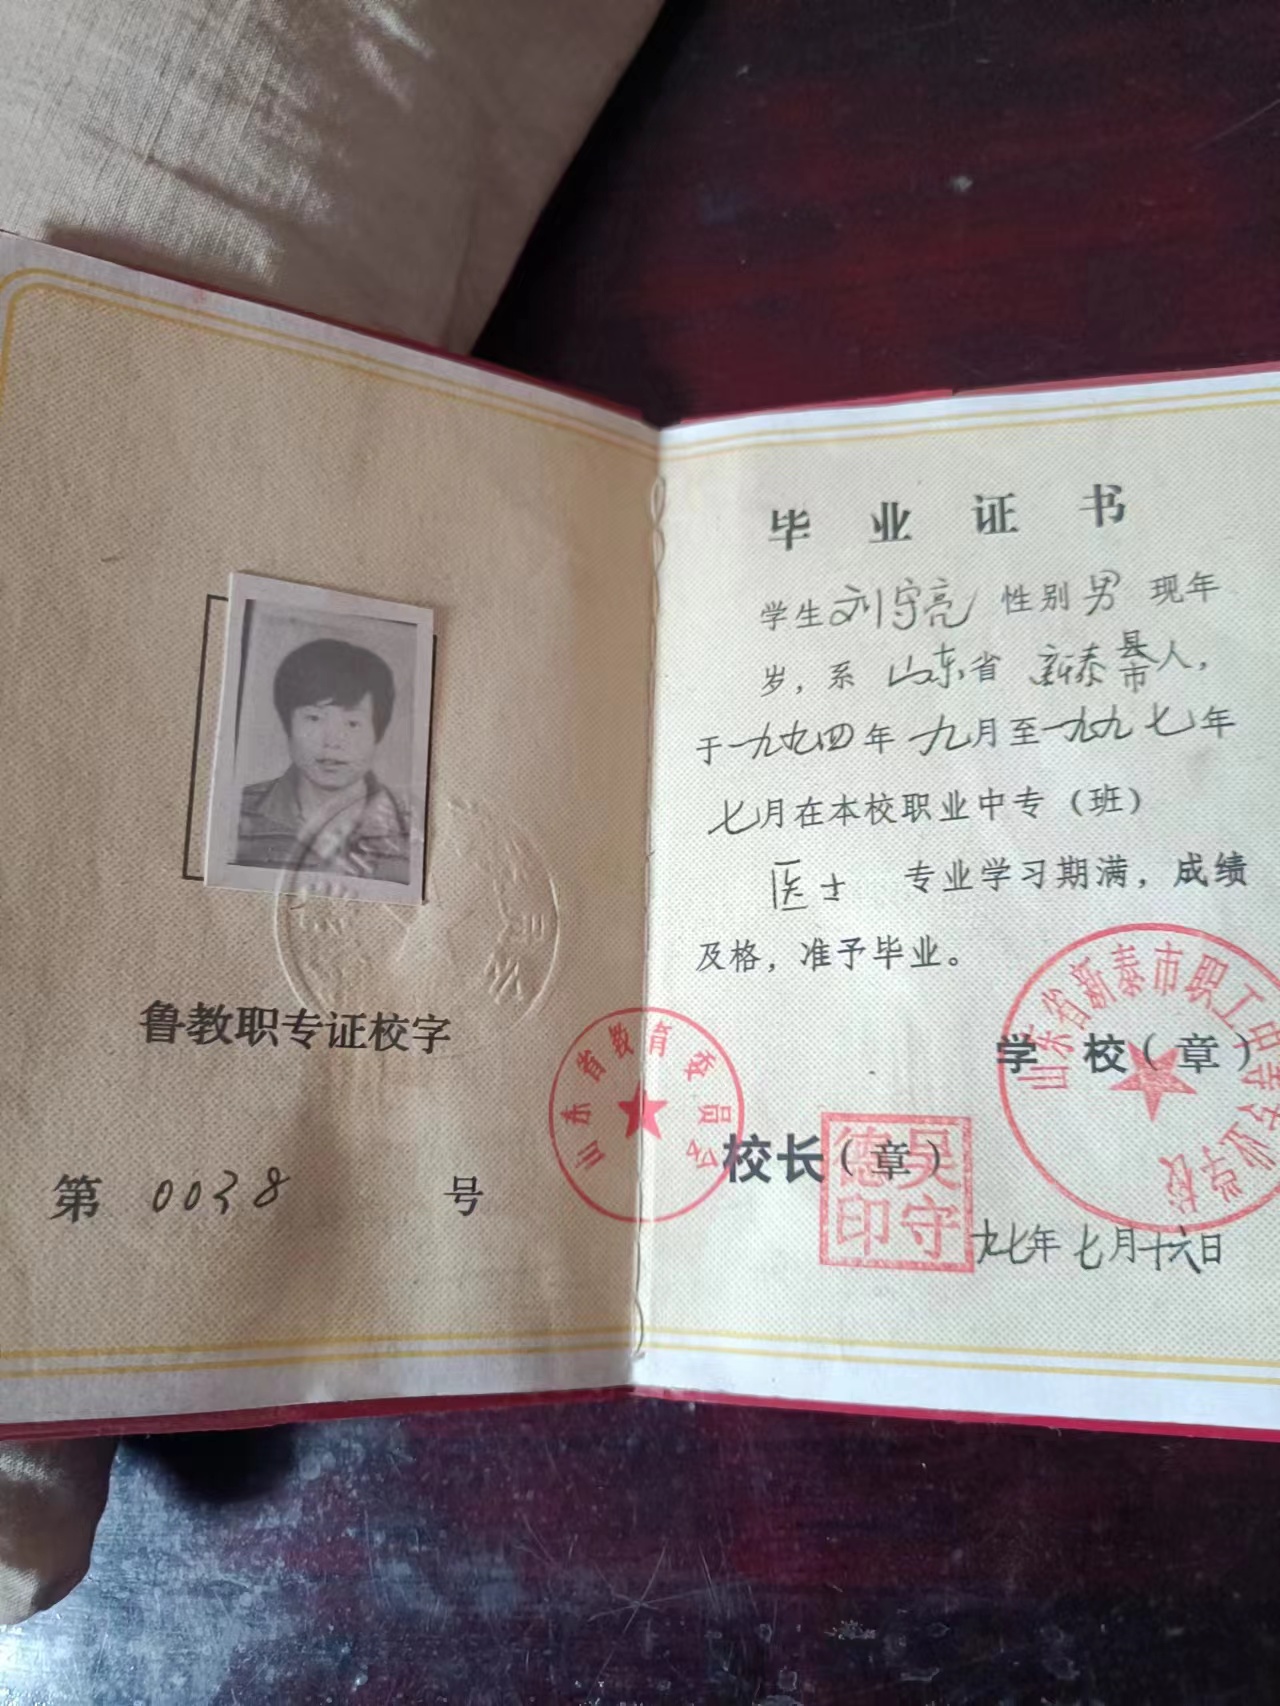 鲁教职专证校字
第 0038 号
毕业证书
学生刘守亮 性别男 现年
岁，系 山东省 新泰县市人，
于一九九四年 九月至一九九七年
七月在本校职业中专（班）
医士 专业学习期满，成绩
及格，准予毕业。
学 校（章）
山东省新泰市职工中等专业学校
山东省教育委员会
校长（章）
吴守德印
九七年七月十六日